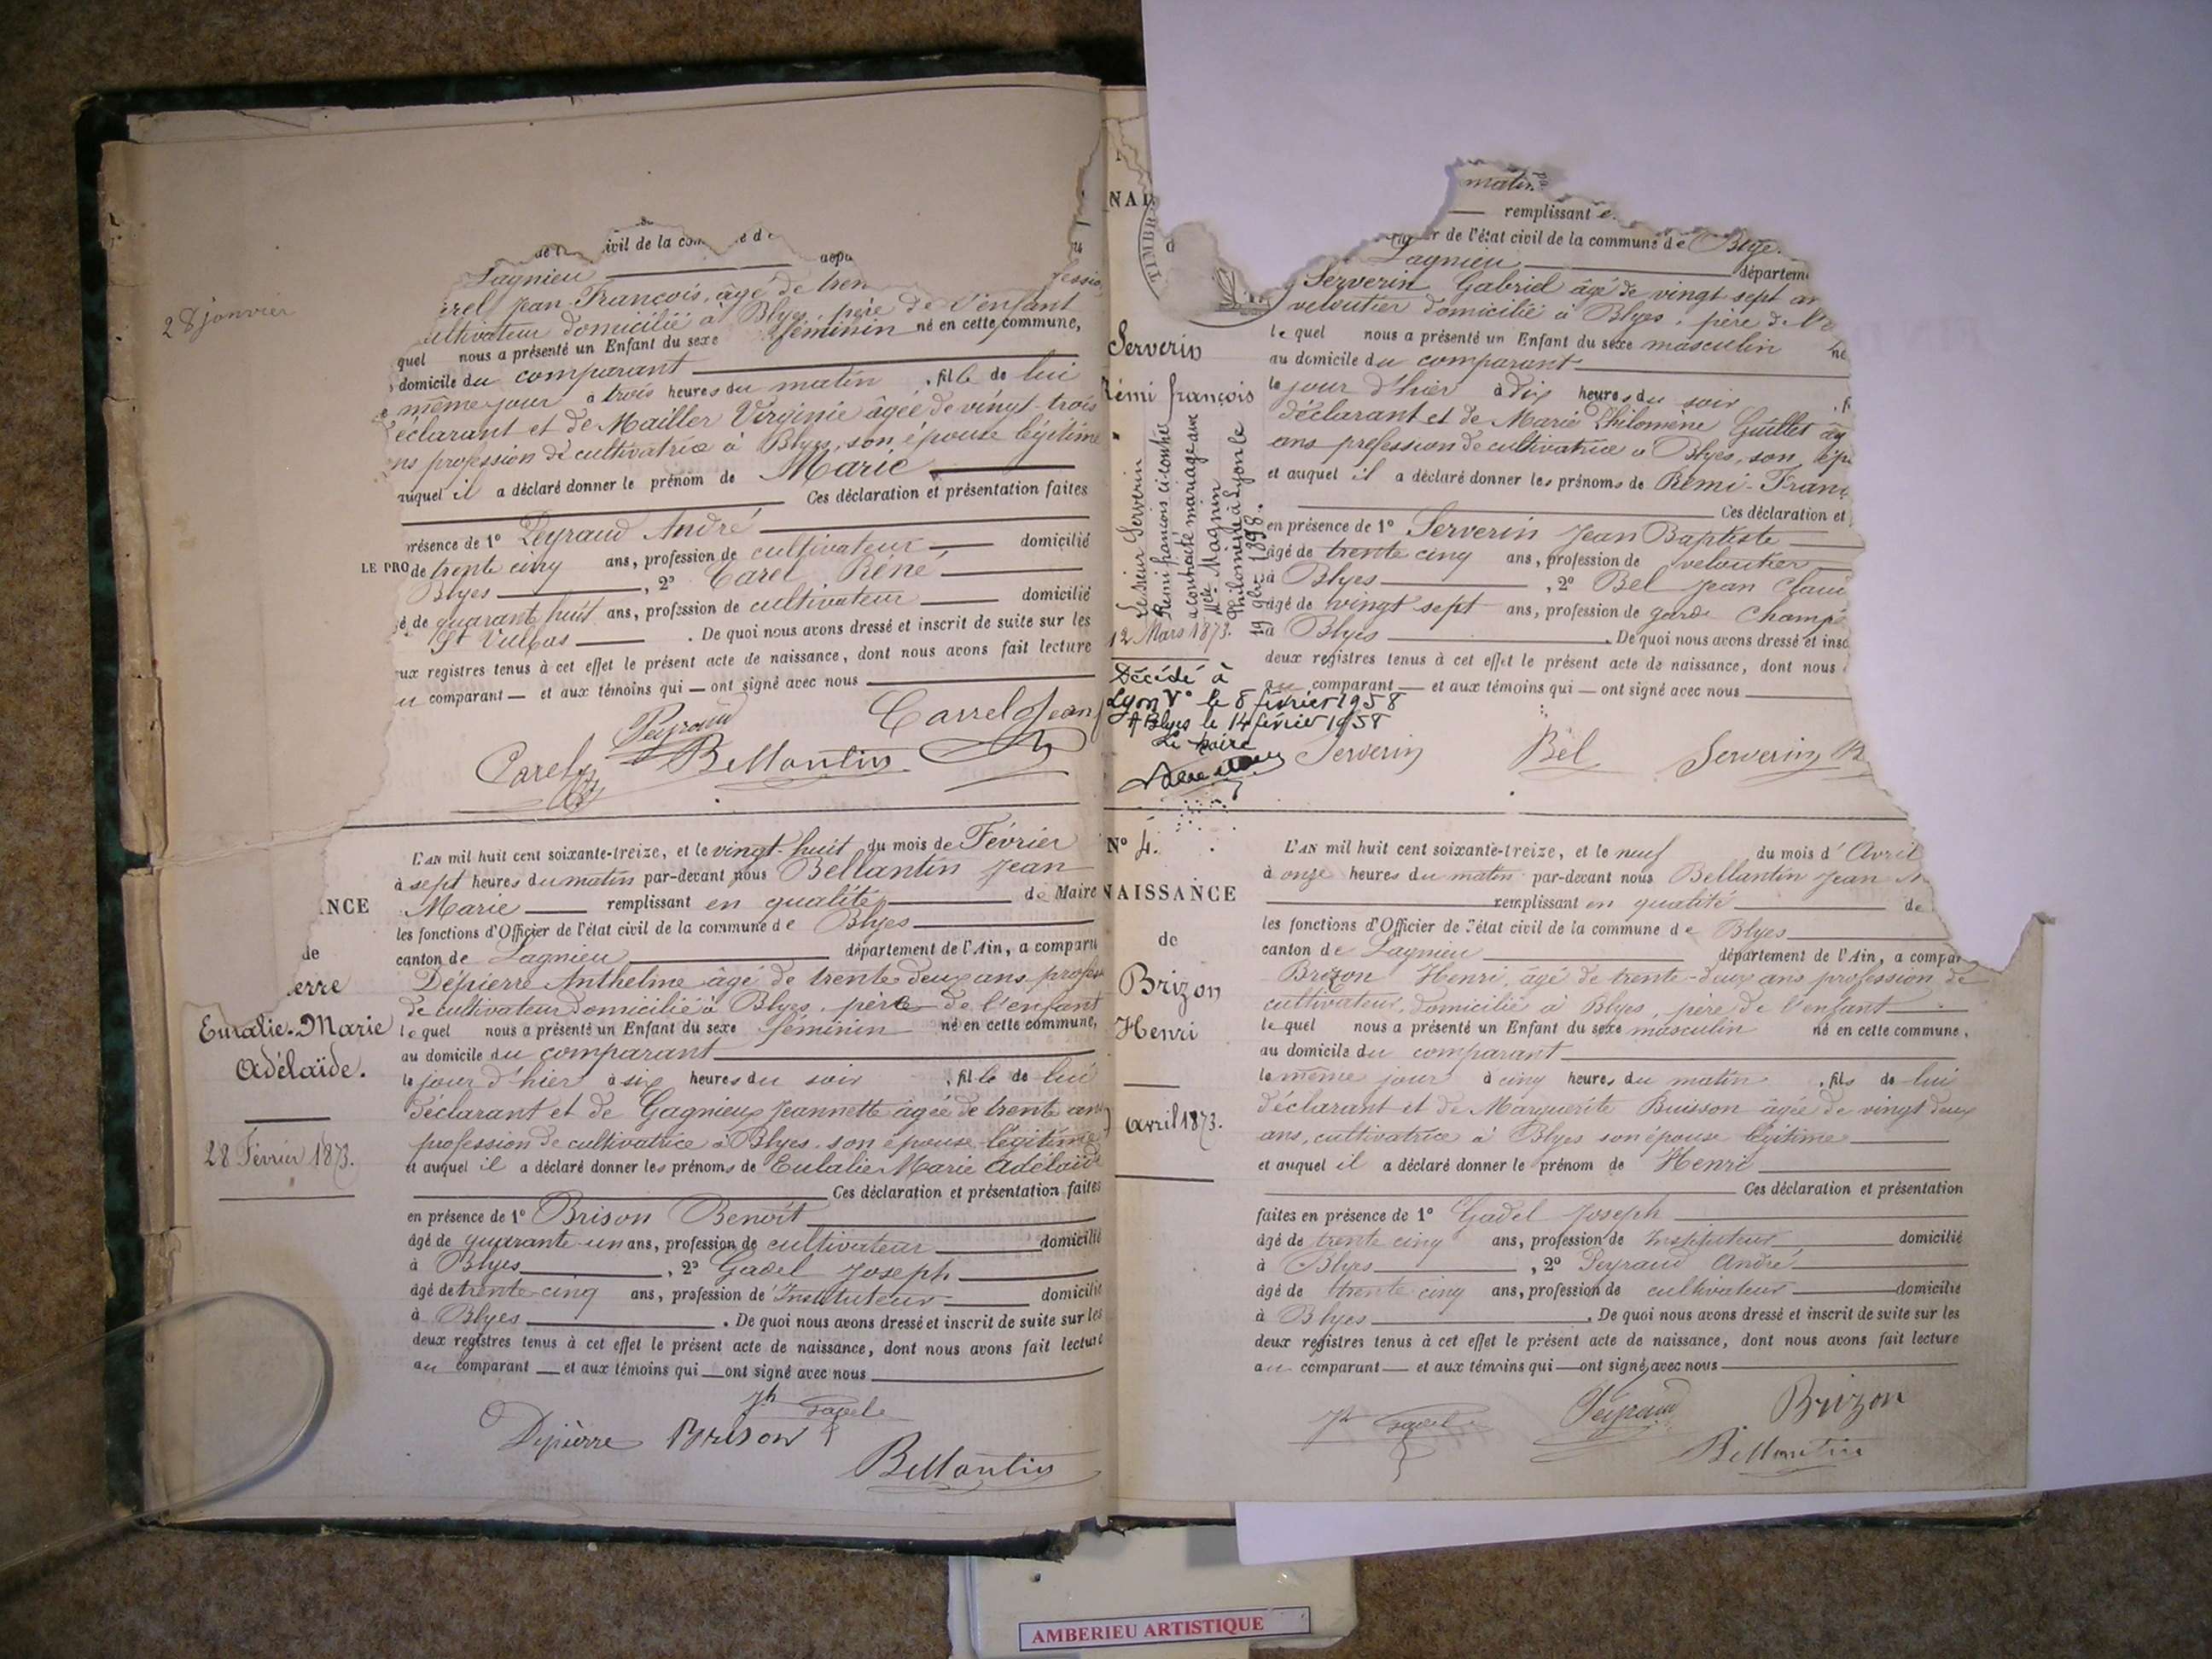 28 janvier
ivil de la com
Lagnieu
rel Jean-François, âgé de tren
ultivateur domicilié à Blyes, père de l'enfant
quel nous a présenté un Enfant du sexe féminin né en cette commune,
domicile du comparant
même jour à trois heures du matin, fille de lui
éclarant et de Mailler Virginie âgée de vingt-trois
ns profession de cultivatrice à Blyes, son épouse légitime
auquel il a déclaré donner le prénom de Marie
Ces déclaration et présentation faites
résence de 1º Peyraud André
LE PRO
de trente cinq ans, profession de cultivateur domicilié
Blyes, 2º Carel Réné
gé de quarant huit ans, profession de cultivateur domicilié
St Vulbas. De quoi nous avons dressé et inscrit de suite sur les
ux registres tenus à cet effet le présent acte de naissance, dont nous avons fait lecture
au comparant et aux témoins qui ont signé avec nous
Peyraud Carrel Jean
Carel Bellantin
NCE
de
erre
Eulalie-Marie
Adélaïde.
28 Février 1873.
L'AN mil huit cent soixante-treize, et le vingt-huit du mois de Février
à sept heures du matin par-devant nous Bellantin Jean
Marie remplissant en qualité de Maire
les fonctions d'Officier de l'état civil de la commune de Blyes
canton de Lagnieu département de l'Ain, a comparu
Dépierre Anthelme âgé de trente deux ans profess
de cultivateur domicilié à Blyes, père de l'enfant
lequel nous a présenté un Enfant du sexe féminin né en cette commune,
au domicile du comparant
le jour d'hier à six heures du soir, fille de lui
déclarant et de Gagnieux Jeannette âgée de trente ans
profession de cultivatrice à Blyes, son épouse légitime
et auquel il a déclaré donner les prénoms de Eulalie Marie Adélaïde
Ces déclaration et présentation faites
en présence de 1º Brison Benoît
âgé de quarante-un ans, profession de cultivateur domicilié
à Blyes, 2º Gadel Joseph
âgé de trente-cinq ans, profession de Instituteur domicilié
à Blyes. De quoi nous avons dressé et inscrit de suite sur les
deux registres tenus à cet effet le présent acte de naissance, dont nous avons fait lecture
au comparant et aux témoins qui ont signé avec nous
Jh Gadel
Dépierre Brison
Bellantin
NAI
TIMBR
Serverin
Rémi françois
Le sieur Serverin
Rémi françois ci-contre
a contracté mariage avec
Melle Magnin
Philomène à Lyon le
19 9bre 1898.
12 Mars 1873.
Décédé à
Lyon Vº le 8 février 1958
A Blyes le 14 février 1958
Le maire
matin
remplissant e
r de l'état civil de la commune de Blye
Lagnieu départem
Serverin Gabriel âgé de vingt sept an
veloutier domicilié à Blyes, père de l'e
lequel nous a présenté un Enfant du sexe masculin né
au domicile du comparant
le jour d'hier à dix heures du soir, f
déclarant et de Marie Philomène Guillet âg
ans profession de cultivatrice à Blyes, son épo
et auquel il a déclaré donner les prénoms de Rémi-Franç
Ces déclaration et
en présence de 1º Serverin Jean Baptiste
âgé de trente cinq ans, profession de veloutier
à Blyes, 2º Bel Jean Clau
âgé de vingt sept ans, profession de garde Champê
à Blyes. De quoi nous avons dressé et insc
deux registres tenus à cet effet le présent acte de naissance, dont nous
au comparant et aux témoins qui ont signé avec nous
Serverin Bel Serverin B
Nº 4.
NAISSANCE
de
Brizon
Henri
avril 1873.
L'AN mil huit cent soixante-treize, et le neuf du mois d'Avril
à onze heures du matin par-devant nous Bellantin Jean M
remplissant en qualité de
les fonctions d'Officier de l'état civil de la commune de Blyes
canton de Lagnieu département de l'Ain, a compar
Brizon Henri, âgé de trente-deux ans profession de
cultivateur, domicilié à Blyes, père de l'enfant
lequel nous a présenté un Enfant du sexe masculin né en cette commune,
au domicile du comparant
le même jour à cinq heures du matin, fils de lui
déclarant et de Marguerite Buisson âgée de vingt deux
ans, cultivatrice à Blyes son épouse légitime
et auquel il a déclaré donner le prénom de Henri
Ces déclaration et présentation
faites en présence de 1º Gadel Joseph
âgé de trente cinq ans, profession de Instituteur domicilié
à Blyes, 2º Peyraud André
âgé de trente cinq ans, profession de cultivateur domicilié
à Blyes. De quoi nous avons dressé et inscrit de suite sur les
deux registres tenus à cet effet le présent acte de naissance, dont nous avons fait lecture
au comparant et aux témoins qui ont signé avec nous
Jh Gadel Peyraud Brizon
Bellantin
AMBERIEU ARTISTIQUE